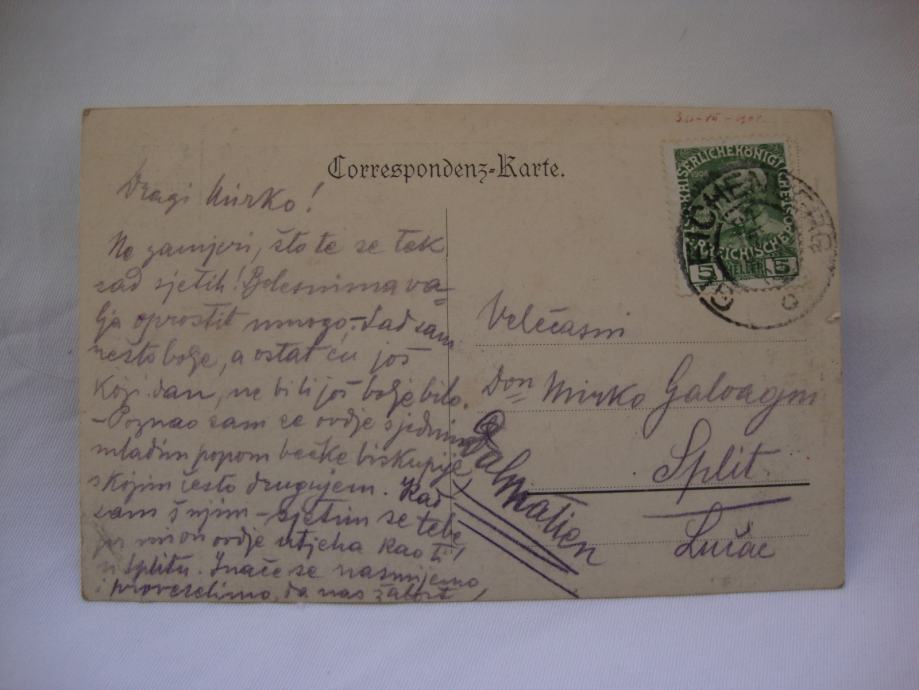 Correspondenz-Karte.
KAISERLICHE KÖNIGLICHE ÖSTERREICHISCHE
5 HELLER 5
GLEICHENBERG
Dragi Mirko!
Ne zamjeri, što te se tek
sad sjetih! Bolesnima va-
lja oprostit mnogo. Sad sam
nešto bolje, a ostat ću još
koji dan, ne bi li još bolje bilo.
- Poznao sam se ovdje s jednim
mladim popom bečke biskupije,
s kojim često drugujem. Kad
sam s njim - sjetim se tebe
jer mi on ovdje utjeha kao ti
u Splitu. Inače se nasmijemo
i proveselimo, da nas
Velečasni
Don Mirko Galvagni
Split
Lučac
Dalmatien